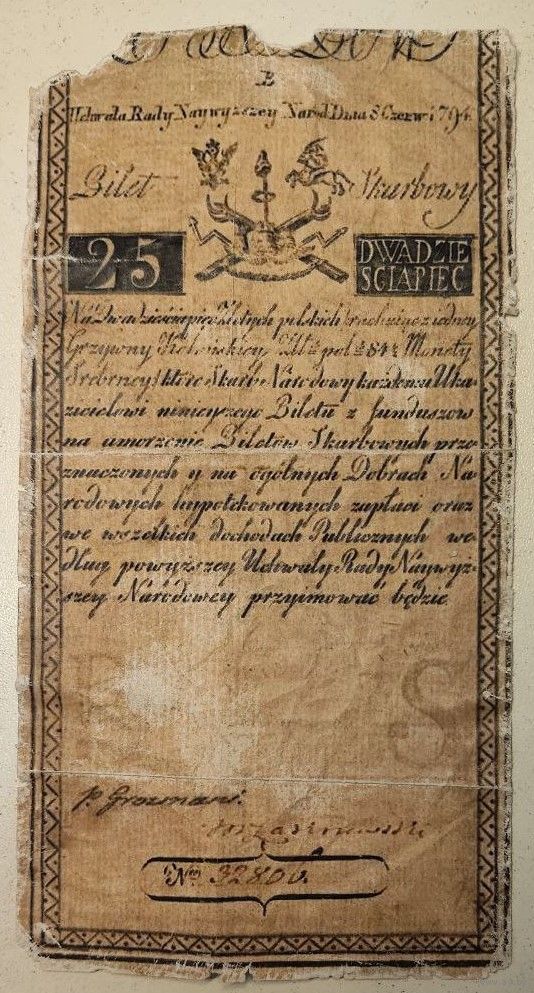 B
Uchwała Rady Naywyższey Narod: Dnia 8 Czerw: 1794.
Bilet Skarbowy
25 DWADZIE
SCIAPIĘC
Na Dwadzieściapięc Złotych polskich rachuiąc z iedney
Grzywny Kolońskiey Złtt pol: 84½ Monety
Srebrney; które Skarb Narodowy każdemu Uka-
zicielowi ninieyszego Biletu z funduszow
na umorzenie Biletów Skarbowych prze-
znaczonych y na ogólnych Dobrach Na
rodowych hypotekowanych zapłaci oraz
we wszelkich dochodach Publicznych we
dług powyższey Uchwały Rady Naywyż-
szey Naródowey przyimować będzie.
S
p Grozmani.
No 32800.